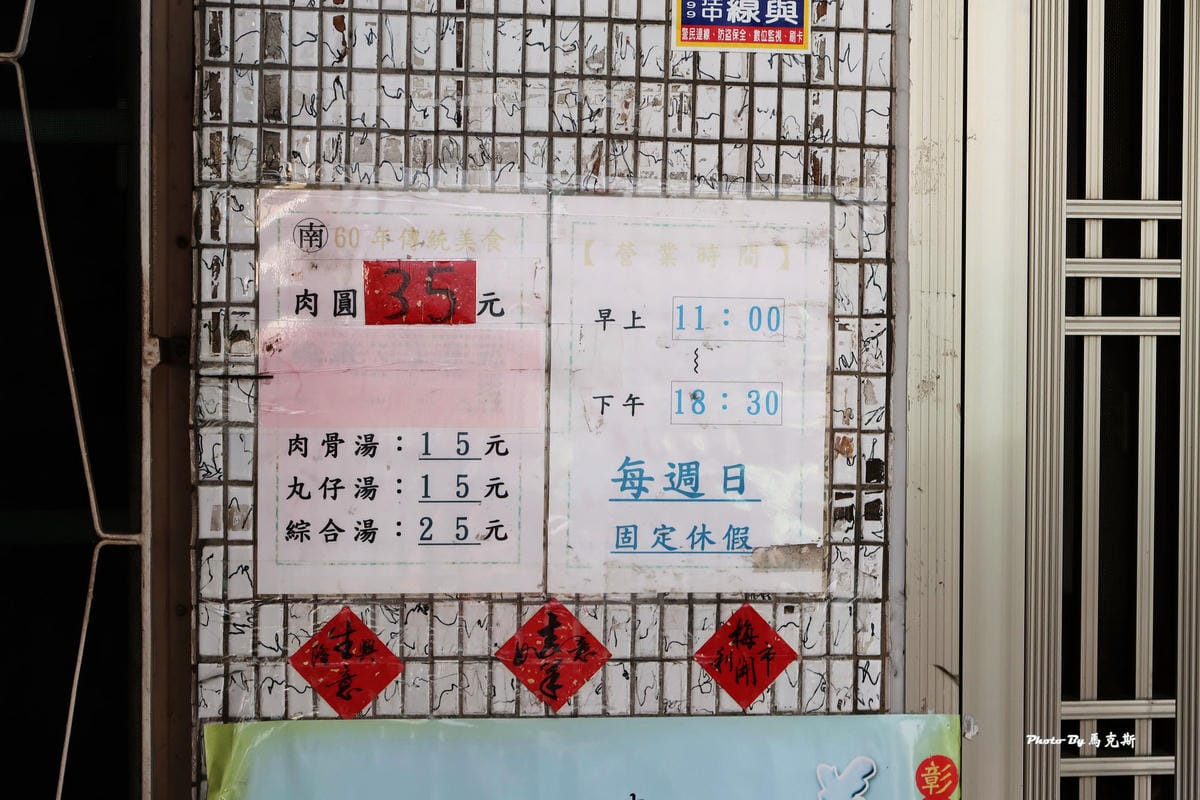 線與
警民連線、防盜保全、數位監視、刷卡
南 60年傳統美食
肉圓 35 元
肉骨湯：15元
丸仔湯：15元
綜合湯：25元
【營業時間】
早上 11：00
~
下午 18：30
每週日
固定休假
生意興隆
利市
開
彰
Photo By 馬克斯